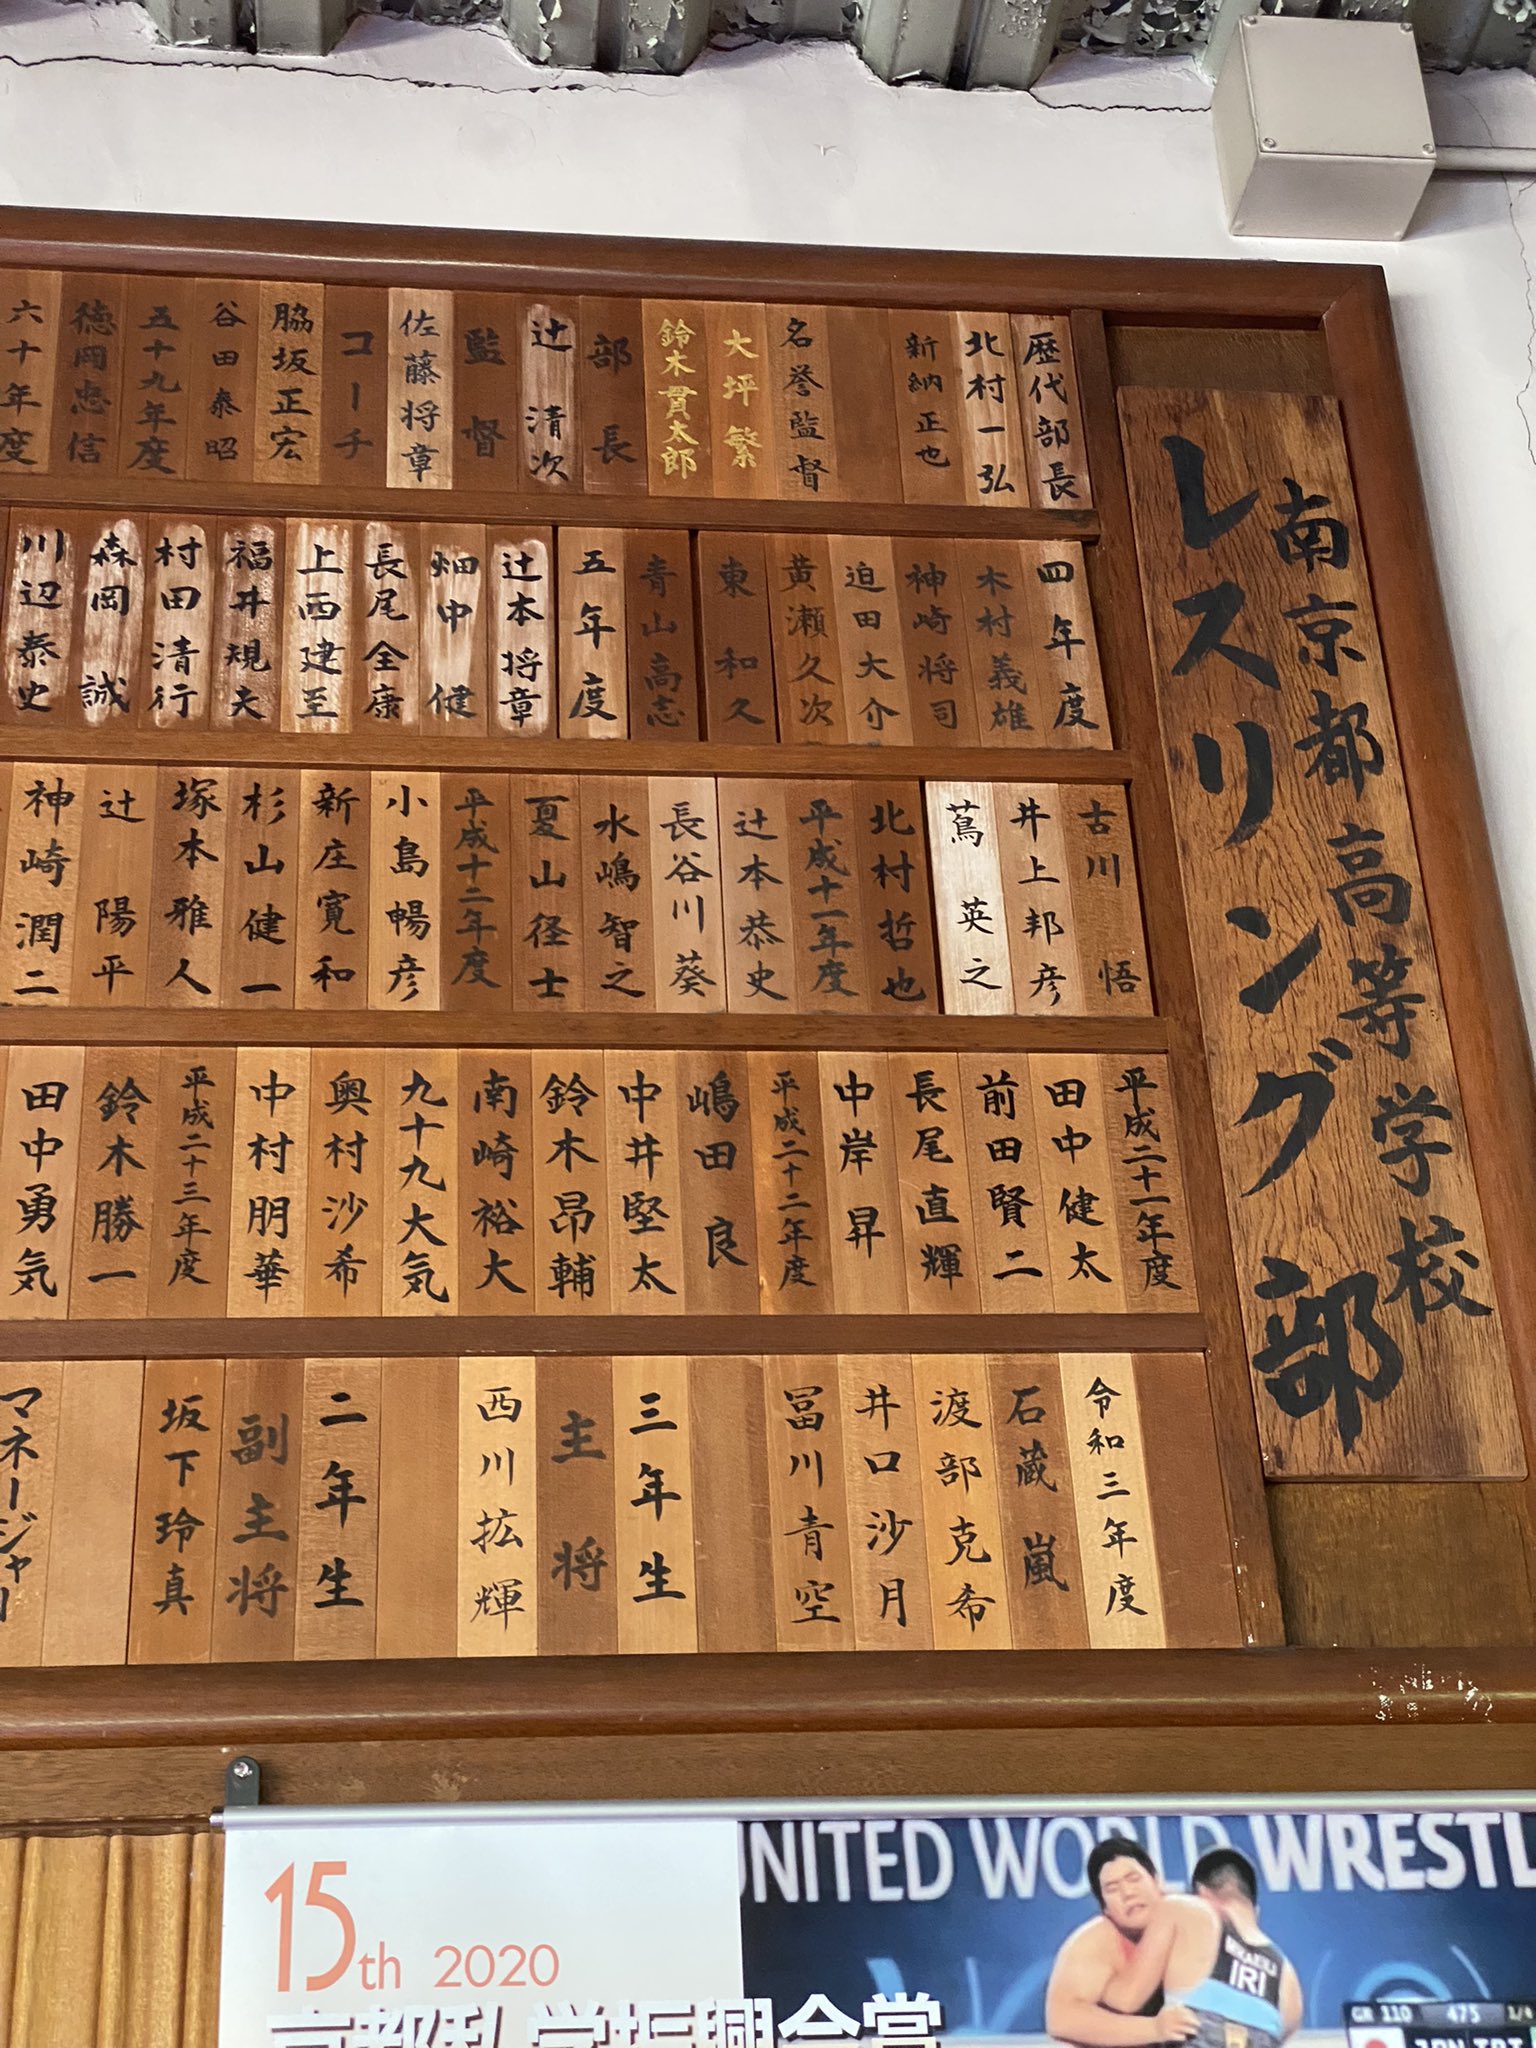 南京都高等学校
レスリング部
歴代部長
北村一弘
新納正也
名誉監督
大坪繁
鈴木貫太郎
部長
辻清次
監督
佐藤将章
コーチ
脇坂正宏
谷田泰昭
五十九年度
徳岡忠信
六十年度
四年度
木村義雄
神崎将司
迫田大介
黄瀬久次
東和久
青山高志
五年度
辻本将章
畑中健
長尾全康
上西建至
福井規夫
村田清行
森岡誠
川辺泰史
古川悟
井上邦彦
蔦英之
北村哲也
平成十一年度
辻本恭史
長谷川葵
水嶋智之
夏山径士
平成十二年度
小島暢彦
新庄寛和
杉山健一
塚本雅人
辻陽平
神崎潤二
平成二十一年度
田中健太
前田賢二
長尾直輝
中岸昇
平成二十二年度
嶋田良
中井堅太
鈴木昂輔
南崎裕大
九十九大気
奥村沙希
中村朋華
平成二十三年度
鈴木勝一
田中勇気
令和三年度
石蔵嵐
渡部克希
井口沙月
冨川青空
三年生
主将
西川拡輝
二年生
副主将
坂下玲真
マネージャー
15th 2020
京都私学振興会賞
UNITED WORLD WRESTL
IRI
GR 110 475 1/4
JPN IRI